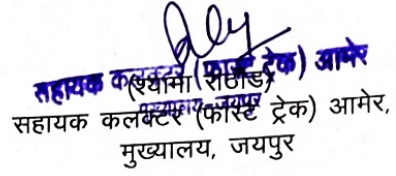 सहायक कलक्टर (फास्ट ट्रेक) आमेर
(श्यामा राठौड़)
सहायक कलक्टर (फास्ट ट्रेक) आमेर,
मुख्यालय, जयपुर